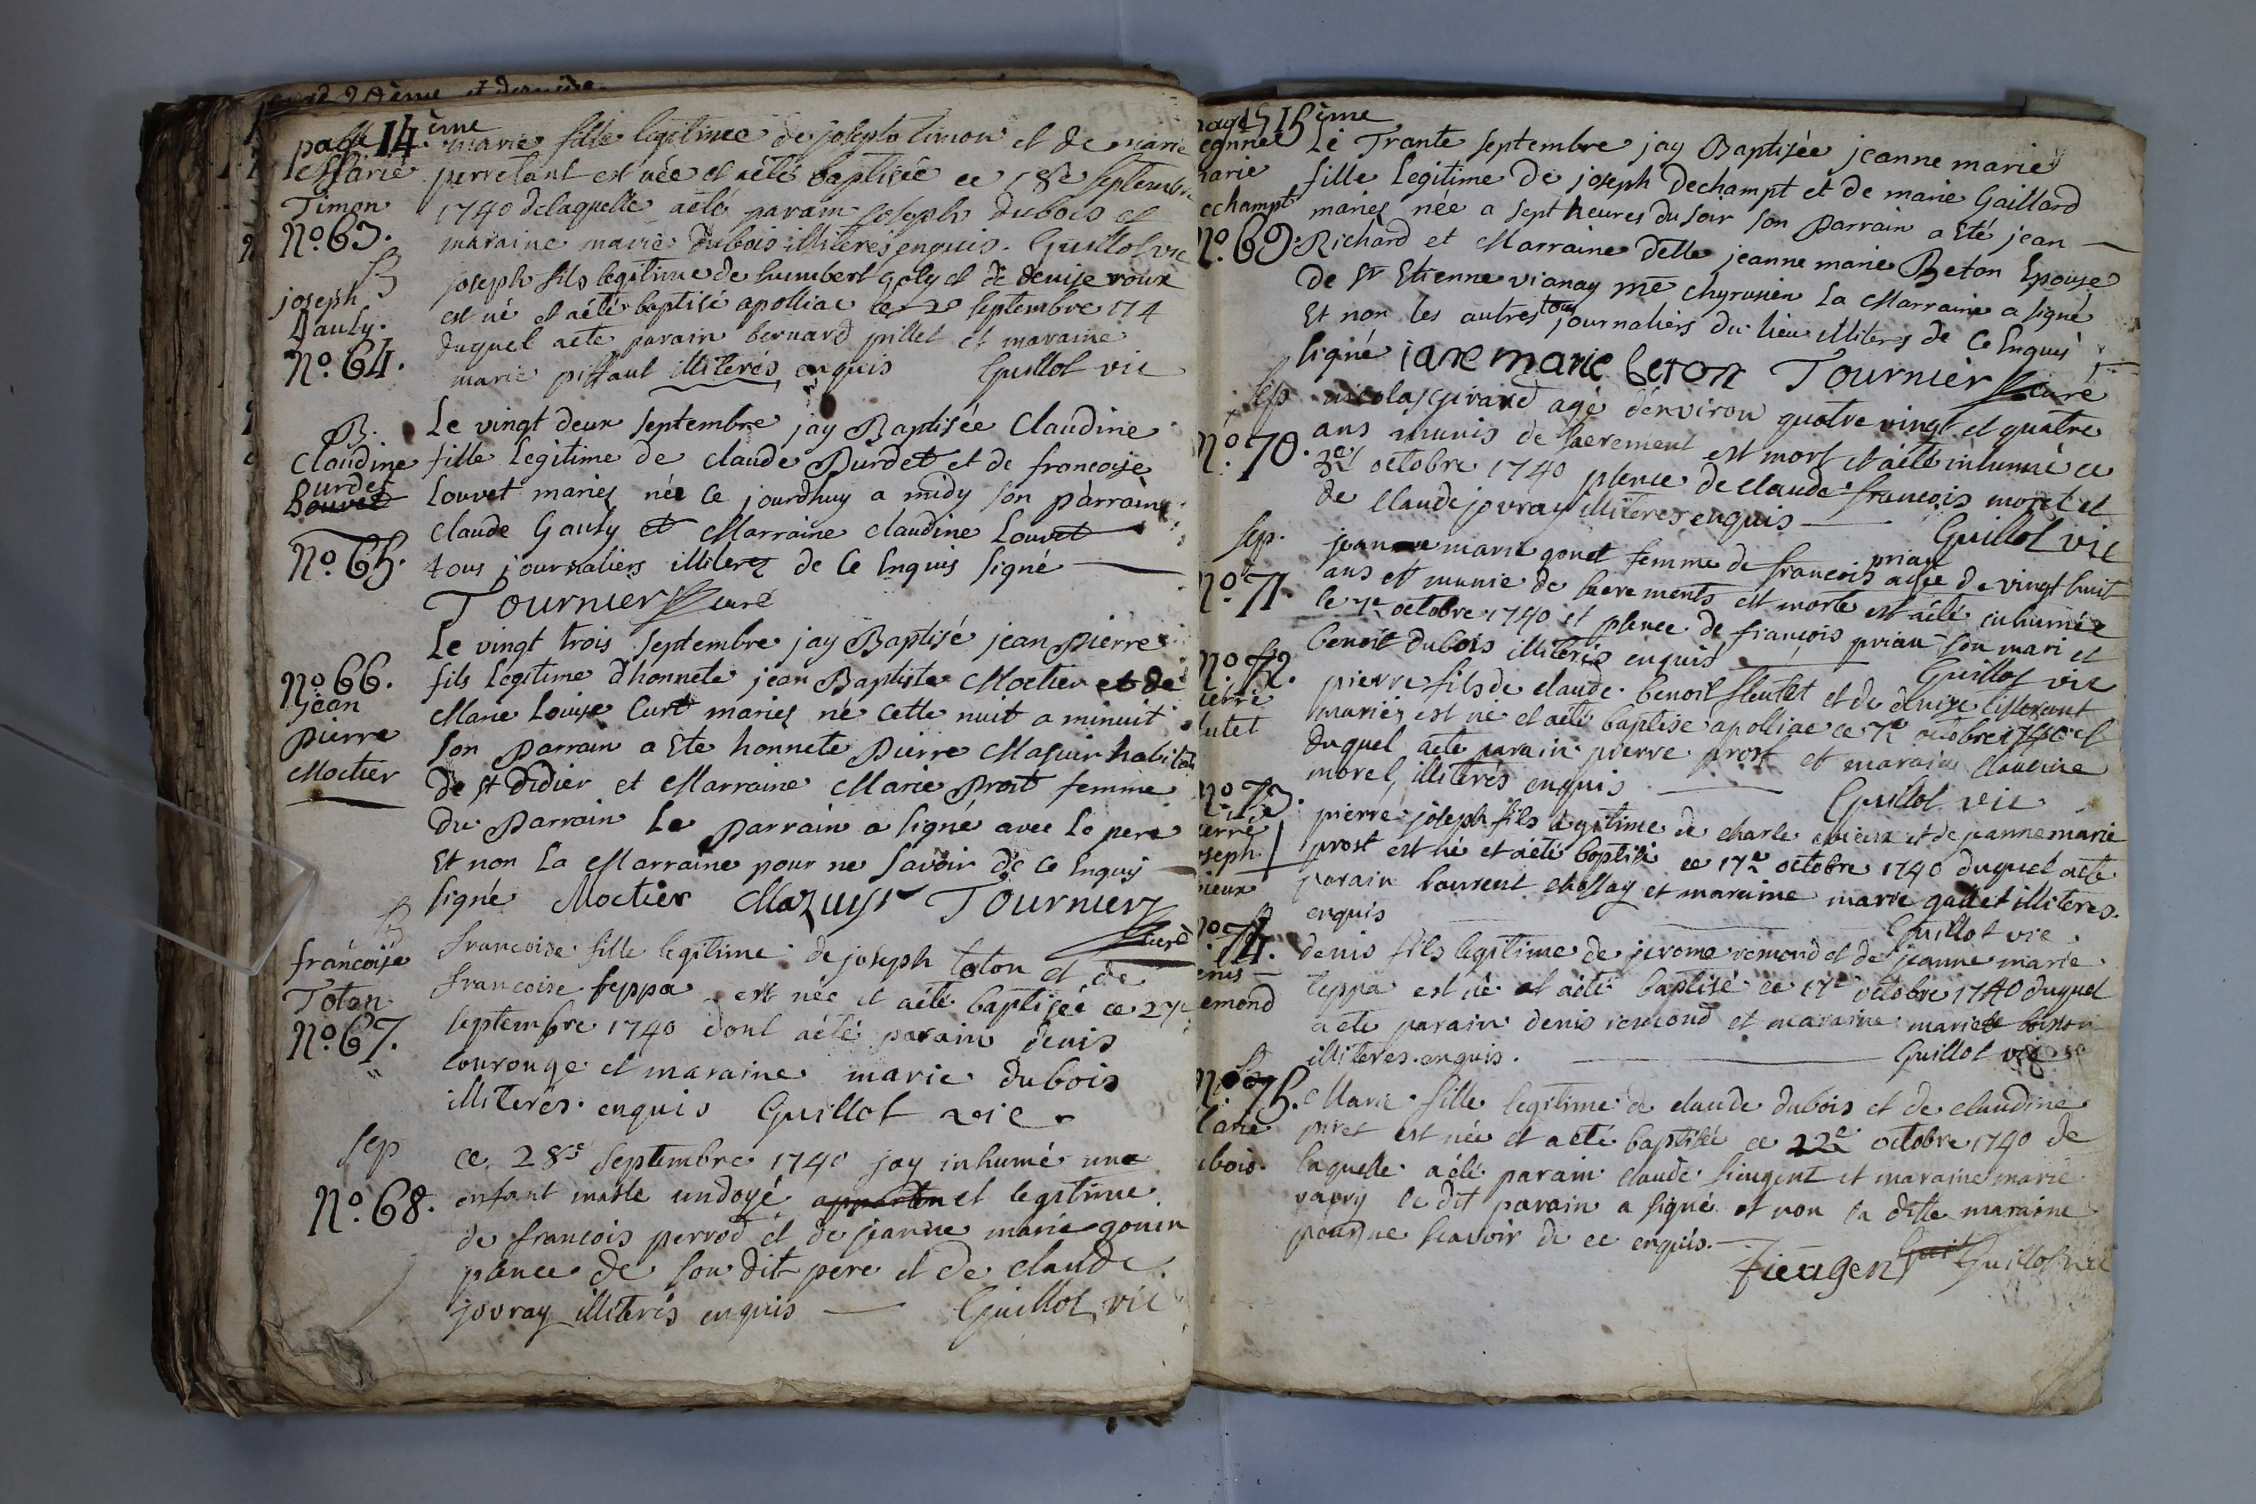 page 14.ème
Marie
Timon
No. 63.
marie fille legitime de joseph timon et de marie
perretant est née et a été baptisée ce 18e septembre
1740 de laquelle a été parain joseph dubois et
maraine marie dubois illiterés enquis. Guillot vic
B
joseph
Gauly.
No. 64.
joseph fils legitime de humbert goly et de denise roux
est né et a été baptisé apolliac ce 20 septembre 174
duquel a été parain bernard pillet et maraine
marie piffaut illiterés enquis Guillot vic
B.
Claudine
Burdet
Louvet
No. 65.
Le vingt deux septembre jay Baptisée Claudine
fille Legitime de claude Burdet et de francoise
Louvet mariez née ce jourdhuy a midy son parrain
claude Gauly et Marraine claudine Louvet
tous journaliers illiterez de ce Enquis signé
Tournier curé
No. 66.
jean
pierre
Moctier
Le vingt trois septembre jay Baptisé jean pierre
fils Legitime d'honnete jean Baptiste Moctier et de
Marie Louise Curt mariez né cette nuit a minuit
son parrain a Eté honnete pierre Mazuir habitant
de st Didier et Marraine Marie Prost femme
du parrain Le parrain a signé avec le pere
Et non La Marraine pour ne savoir de ce Enquis
signé Moctier Mazuyr Tournier
curé
B
françoise
Toton
No. 67.
francoise fille legitime de joseph toton et de
francoise feppa est née et a été baptisée ce 27e
septembre 1740 dont a été parain denis
courouge et maraine marie dubois
illiterés. enquis Guillot vic
sep
No. 68.
ce 28e septembre 1740 jay inhumé une
enfant masle undoyé apparten et legitime
de francois perrod et de jeanne marie gonin
pnce de son dit pere et de claude
jovray illiterés enquis Guillot vic
page 15 15ème
eanne
arie
echampt
No. 69.
Le Trante septembre jay Baptisée jeanne marie
fille Legitime de joseph Dechampt et de marie Gaillard
mariez née a sept heures du soir son parrain a Eté jean
Richard et Marraine Delle jeanne marie Beton Epouse
de Sr Etienne vianay me chyrurien La Marraine a signé
Et non les autres tous journaliers du lieu illiterez de ce Enquis
signé iane marie beton Tournier curé
sep
No. 70.
nicolas girard agé d'environ quatre vingt et quatre
ans munis de sacrement est mort et a été inhumé ce
3e octobre 1740 pnce de claude francois moret et
de claude jovray illiterés enquis Guillot vic
sep.
No. 71.
jeanne marie gonet femme de francois prian agée de vingt huit
ans et munie de sacrements est morte est a été inhumée
le octobre 1740 et pnce de françois prian son mari et
benoit dubois illiterés enquis Guillot vic
No. 72.
ierre
lutet
pierre fils de claude benoit fleutet et de denise
mariez est né et a été baptisé apolliac ce 7e octobre 1740 et
duquel a été parain pierre prost et maraine claudine
morel, illiterés enquis Guillot vic
No. 73.
ierre
oseph
bieux
pierre joseph fils legitime de charle et de jeanne marie
prost est né et a été baptisé ce 17e octobre 1740 duquel a été
parain laurent chossay et maraine marie gallet illiterés.
enquis Guillot vic
B
No. 74.
enis
emond
denis fils legitime de jerome remond et de jeanne marie
feppa est né et a été baptisé ce 17e octobre 1740 duquel
a été parain denis remond et maraine mariette
illiterés. enquis. Guillot vic
B
No. 75.
arie
ubois.
Marie fille legitime de claude dubois et de claudine
piret est née et a été baptisée ce 22e octobre 1740 de
laquelle a été parain claude fieugent et maraine marie
vapry le dit parain a signé et non la ditte maraine
pour ne scavoir de ce enquis.
fieugent Guil Guillot vic